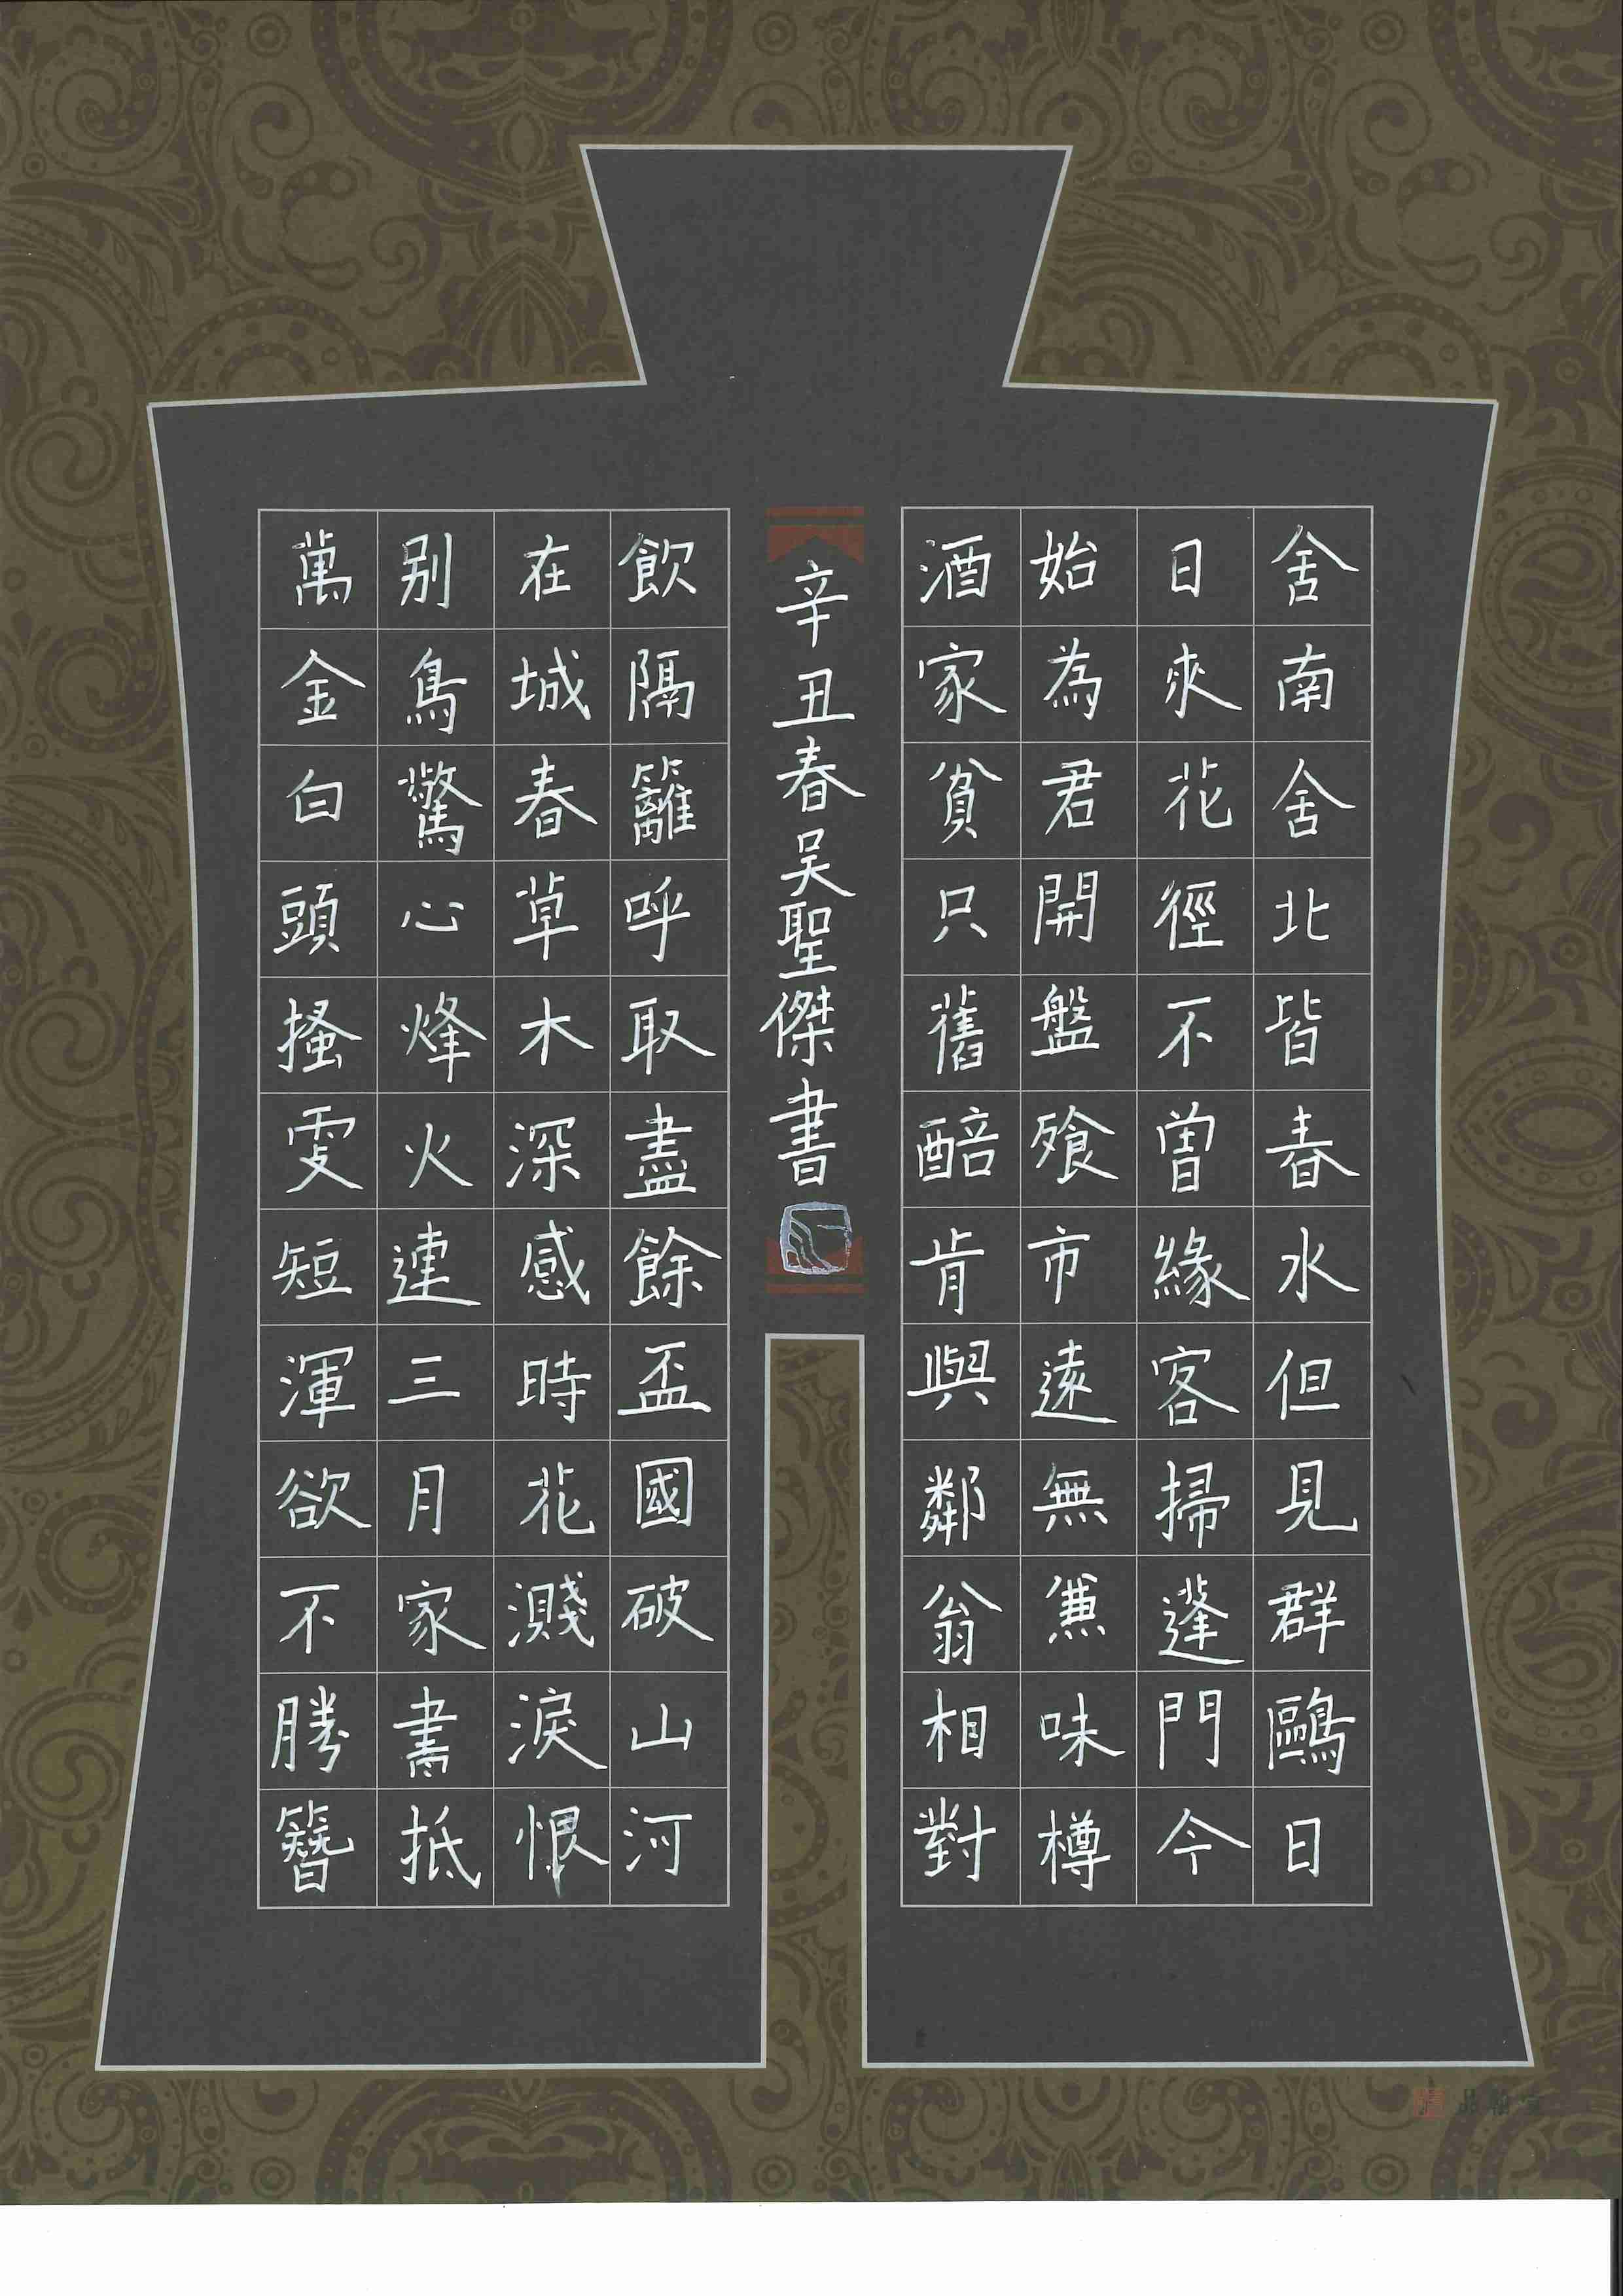 舍南舍北皆春水但見群鷗日
日來花徑不曾緣客掃蓬門今
始為君開盤飱市遠無兼味樽
酒家貧只舊醅肯與鄰翁相對
飲隔籬呼取盡餘盃國破山河
在城春草木深感時花濺淚恨
别鳥驚心烽火連三月家書抵
萬金白頭搔更短渾欲不勝簪
辛丑春吴聖傑書